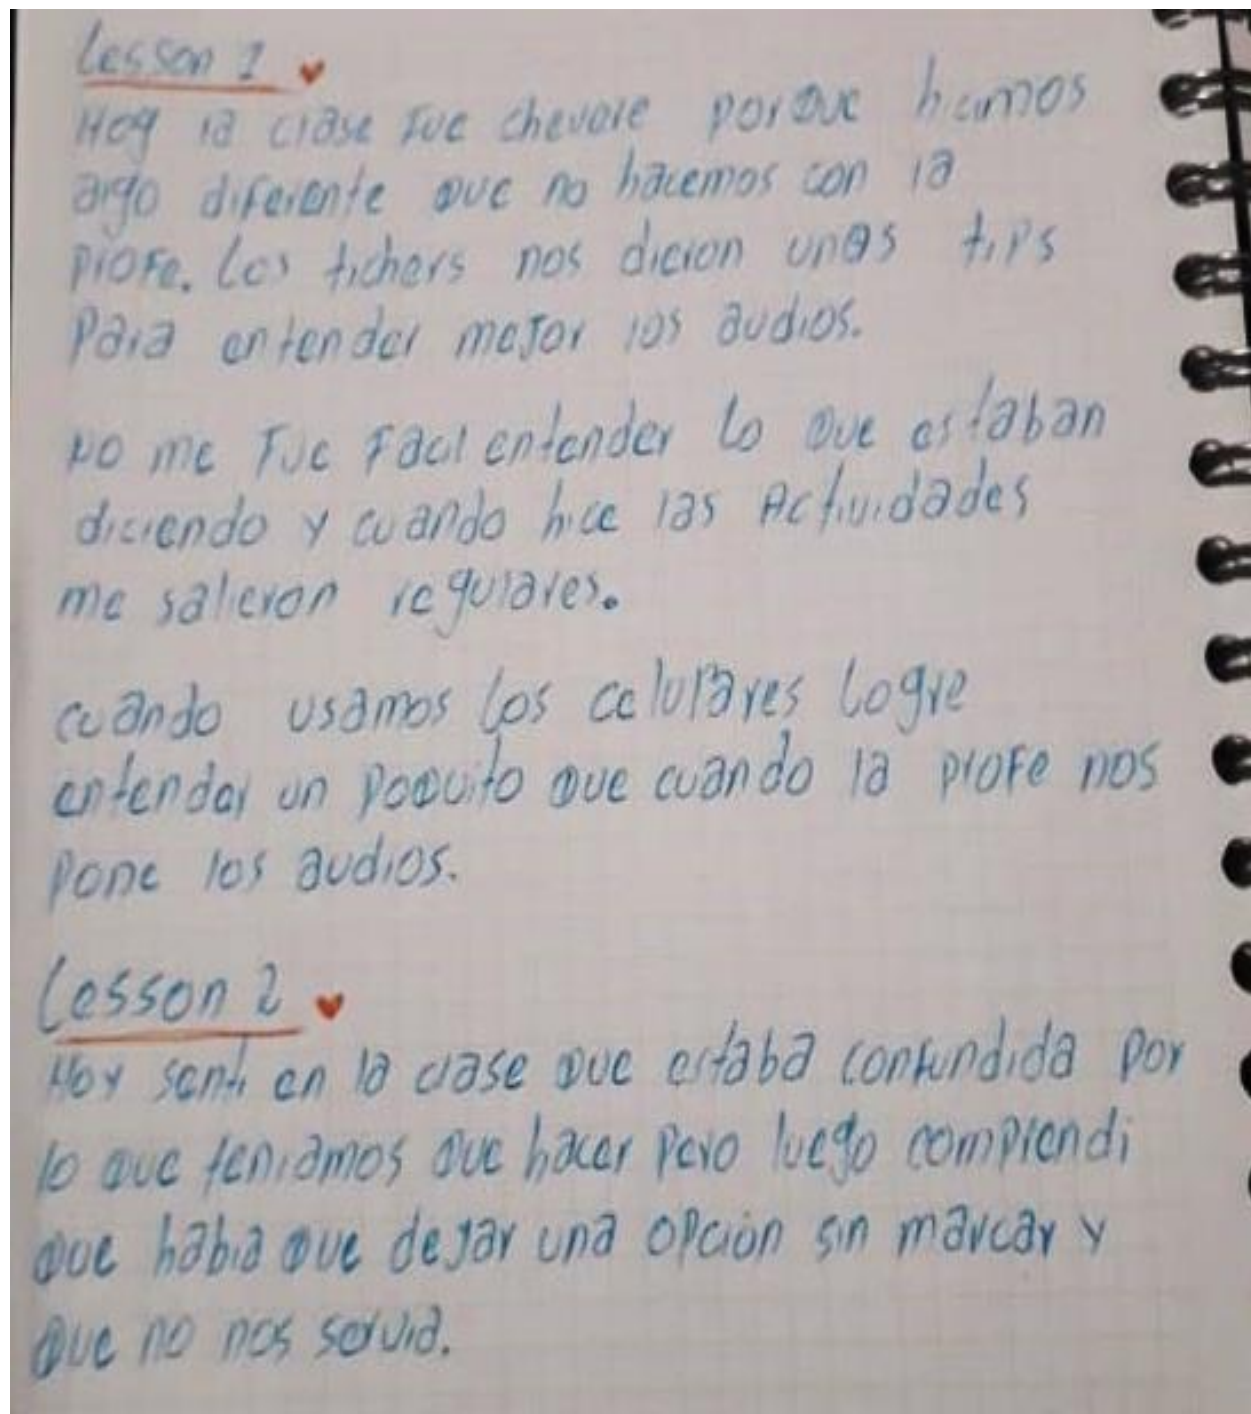 Lesson 1
Hoy la clase fue chevere porque hicimos
algo diferente que no hacemos con la
profe. Los tichers nos dieron unos tips
Para entender mejor los audios.
No me fue facil entender lo que estaban
diciendo y cuando hice las Actividades
me salieron regulares.
cuando usamos los celulares logre
entender un poquito que cuando la profe nos
pone los audios.
Lesson 2
Hoy senti en la clase que estaba confundida por
lo que teniamos que hacer pero luego comprendi
que habia que dejar una opcion sin marcar y
que no nos servia.